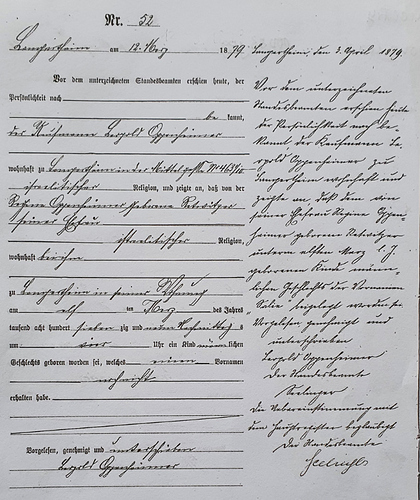 Nr. 52
Lampertheim am 12. März 1879
Vor dem unterzeichneten Standesbeamten erschien heute, der
Persönlichkeit nach
be kannt,
der Kaufmann Leopold Oppenheimer
wohnhaft zu Lampertheim in der
israelitischer Religion, und zeigte an, daß von der
Regina Oppenheimer geborene
seiner Ehefrau
israelitischer Religion
wohnhaft bei ihm
zu Lampertheim in seiner Wohnung
am elf ten März des Jahres
tausend acht hundert sieben zig und neun Nachmittags
um vier Uhr ein Kind männlichen
Geschlechts geboren worden sei, welches einen Vornamen
noch nicht
erhalten habe.
Vorgelesen, genehmigt und unterschrieben
Leopold Oppenheimer
Lampertheim, den 3. April 1879.
Vor dem unterzeichneten
Standesbeamten erschien heute
der Persönlichkeit nach be-
kannt der Kaufmann Le-
opold Oppenheimer zu
Lampertheim wohnhaft und
zeigte an, daß dem von
seiner Ehefrau Regina Oppen-
heimer geborene
unterm elften März l. J.
geborenen Kinde männ-
lichen Geschlechts der Vornamen
beigelegt worden sei
Vorgelesen genehmigt und
unterschrieben
Leopold Oppenheimer
Der Standesbeamte
Seelinger
Die Uebereinstimmung mit
dem Hauptregister beglaubigt
Der Standesbeamte
Seelinger